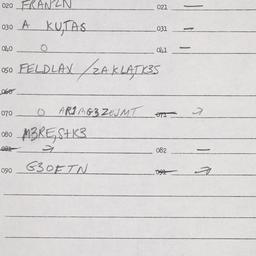 020 FRANZN 021 —
030 A KUTAS 031 —
040 O 041 —
050 FELDLAX / ZAKLATK3S
060
070 O 071 →
080 M3RE,S+K3
081 → 082 —
090 G3OFTN 091 →